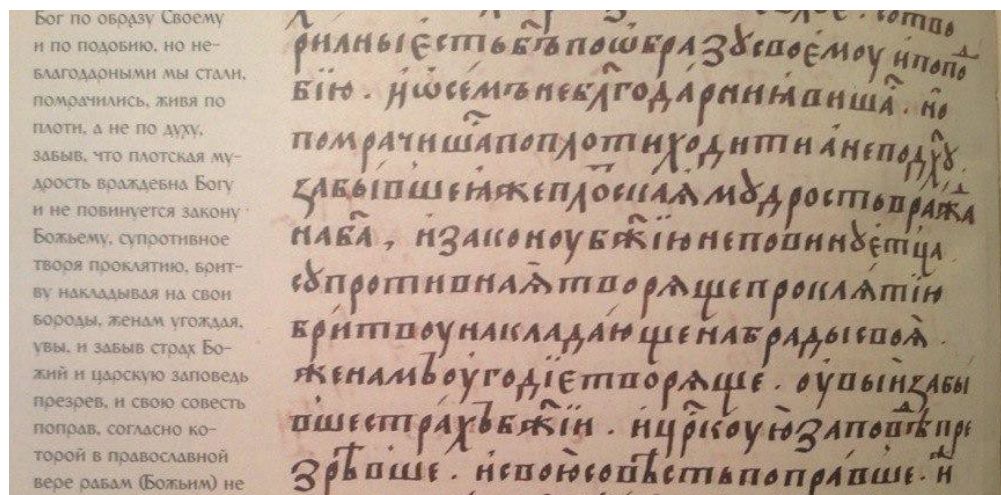 Бог по образу Своему
и по подобию, но не-
благодарными мы стали,
помрачились, живя по
плоти, а не по духу,
забыв, что плотская му-
дрость враждебна Богу
и не повинуется закону
Божьему, супротивное
творя проклятию, брит-
ву накладывая на свои
бороды, женам угождая,
увы, и забыв страх Бо-
жий и царскую заповедь
презрев, и свою совесть
поправ, согласно ко-
торой в православной
вере рабам (Божьим) не
сотво
рилныестьб҃ъпоѡбразꙋсвоемоу ипопоⷣ
бїю . иѡсемънебл҃годарниꙗвишаⷭ҇ . но
помрачишаⷭ҇поплотиходитианеподх҃ꙋ
забывшеꙗжеплоⷮскаꙗмꙋдростьвражⷣа
наб҃а , изаконоубж҃їюнеповинꙋетца
сꙋпротивнаѧтворѧщепроклѧтїю
бритвоунакладающенабрадысвоѧ .
женамъоугодїетворѧще . оувыизабы
вшестрахъбж҃їи . ицр҃ скоуюзаповⷣѣпре
зрѣвше . исвоюсовѣстьпоправше . и